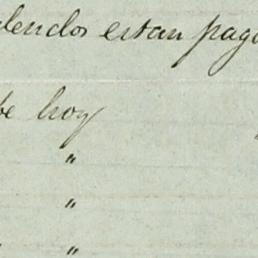 dendos estan pag
be hoy
"
"
"